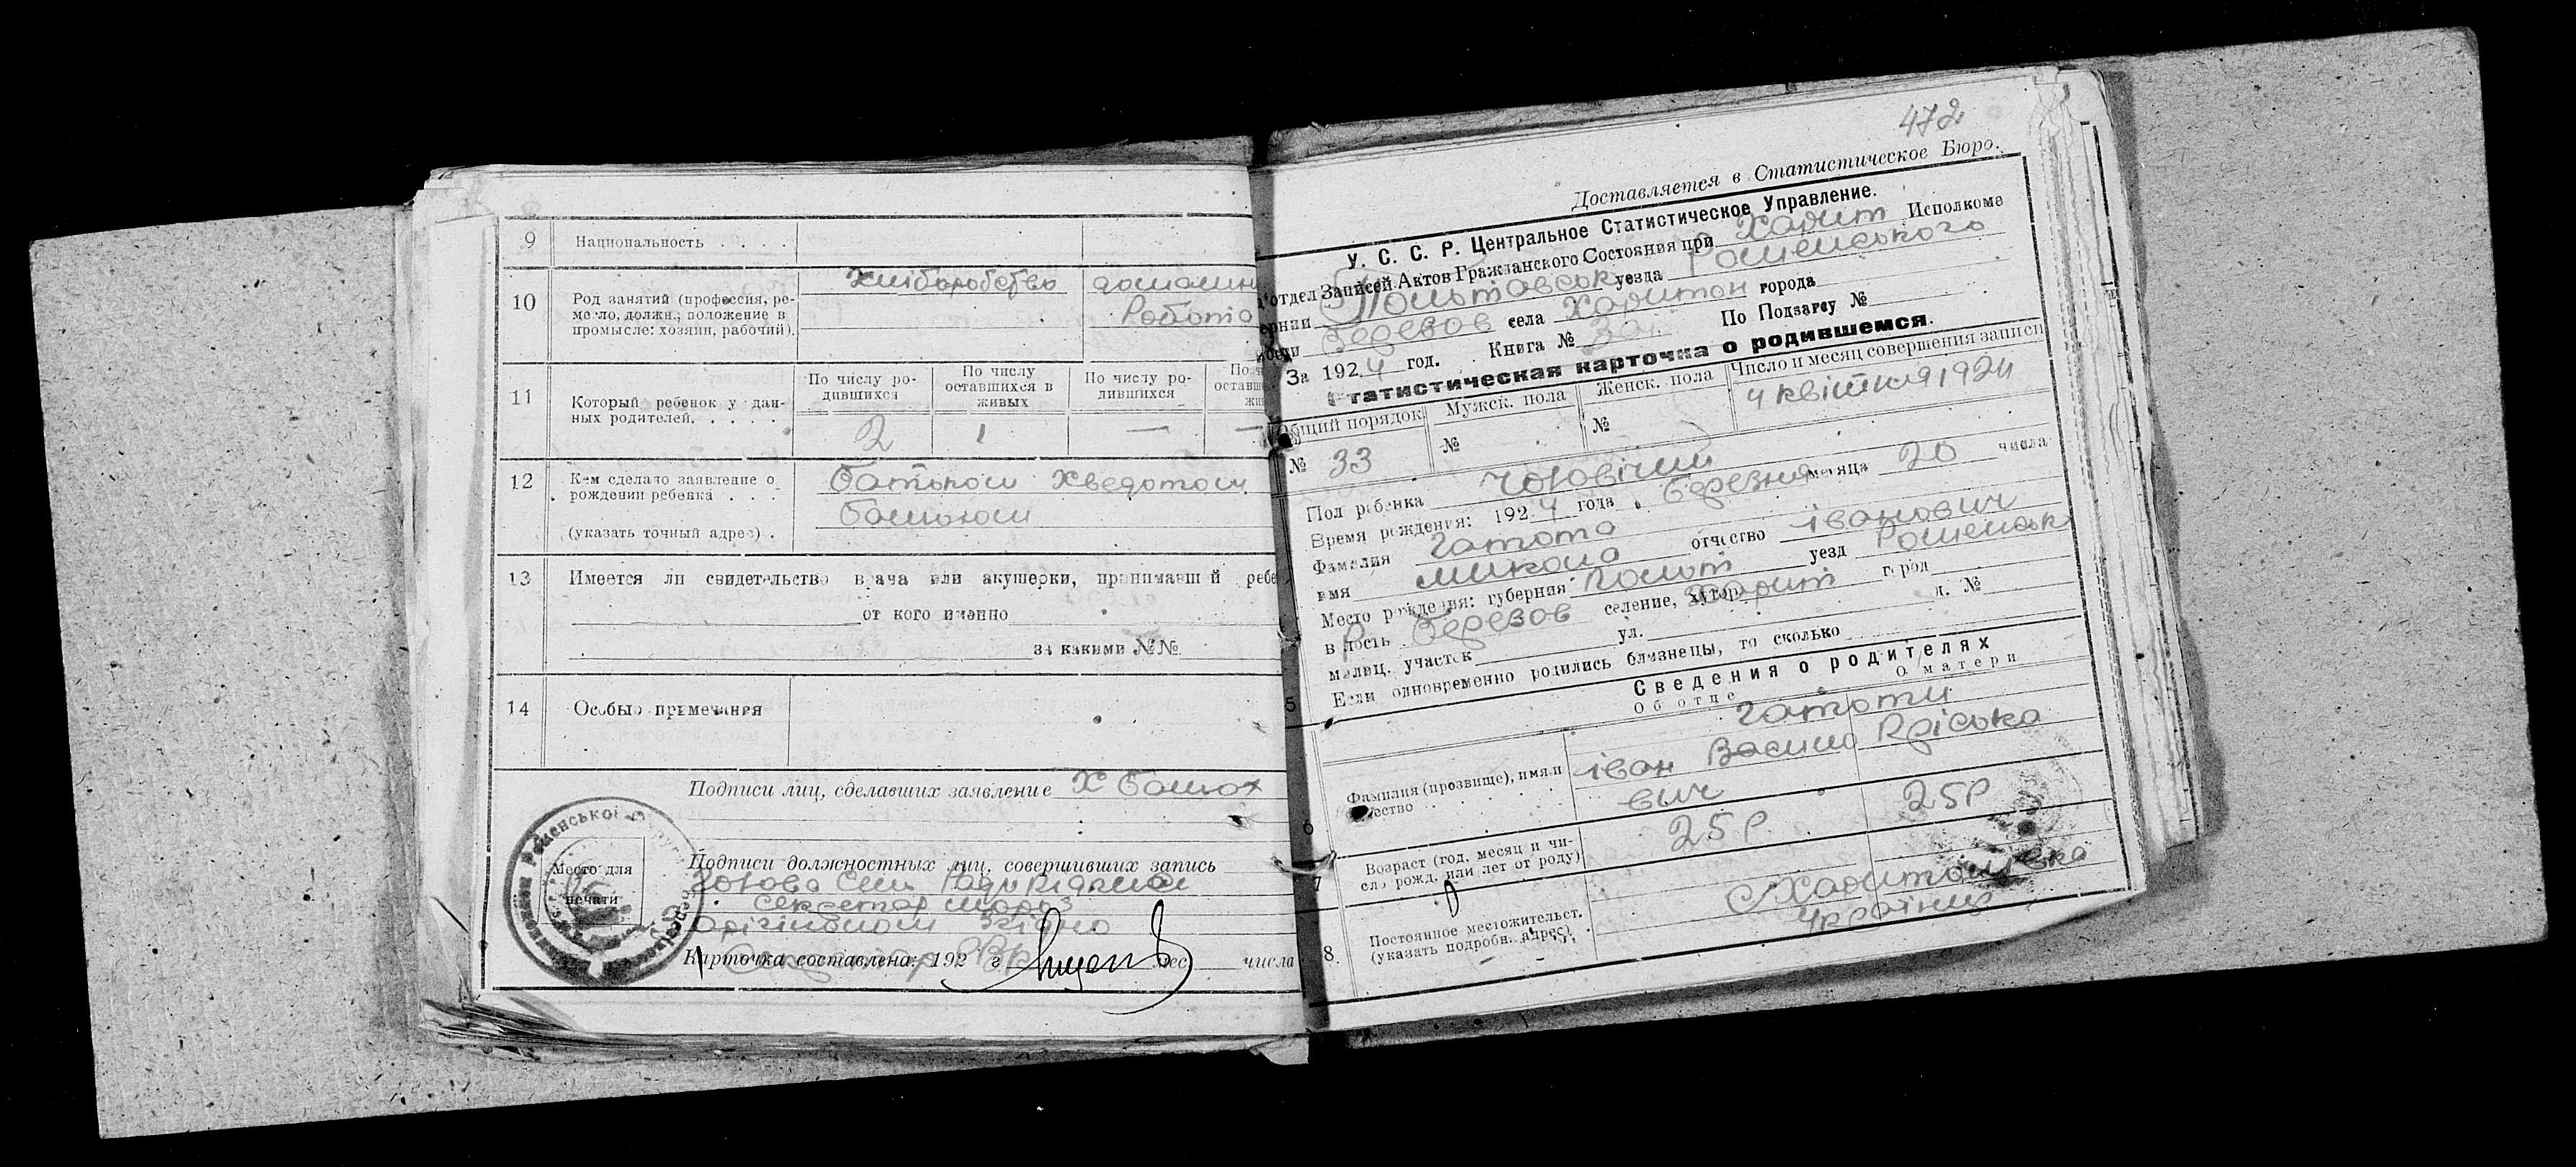 9 Национальность . . . .
10 Род занятий (профессия, ре-
месло, должн.; положение в
промысле: хозяин, рабочий).
Хліборобство
Робота
11 Который ребенок у дан-
ных родителей. . . . .
По числу ро-
дившихся
По числу
оставшихся в
живых
По числу ро-
дившихся
2 1 — —
12 Кем сделано заявление о
рождении ребенка . . .
(указать точный адрес) .
Батьком Хведотом
13 Имеется ли свидетельство врача или акушерки, принимавшей ребе
от кого именно
за какими №№
14 Особые примечания
Подписи лиц, сделавших заявление Х
Место для
печати
Подписи должностных лиц, совершивших запись
Голова Сіль Ради
Секретар Мороз
Оригіналом Згідно
Карточка составлена: 192 г. мес. числа
472
Доставляется в Статистическое Бюро.
У. С. С. Р. Центральное Статистическое Управление.
отдел Записей Актов Гражданского Состояния при Харит Исполкоме
ернии Полтавськ уезда Роменського
Березов села Харитон города
За 1924 год. Книга № По Подзагсу №
Статистическая карточка о родившемся.
Общий порядок Мужск. пола Женск. пола Число и месяц совершения записи
№ 33 № № 4 квітня 1924
Пол ребенка чоловічий
Время рождения: 1924 года березня месяца 20 числа
Фамилия Гамота
имя Микола отчество Іванович
Место рождения: губерния Полт уезд Роменськ
волость Березов селение, хутор Харит город
милиц. участок ул. д. №
Если одновременно родились близнецы, то сколько
5 Сведения о родителях
Об отце О матери
6 Фамилия (прозвище), имя и
отчество
Гамоти
Іван Васильо Пріська
вич
7 Возраст (год, месяц и чи-
сло рожд. или лет от роду)
25 р. 25 р
8. Постоянное местожительст.
(указать подробн. адрес).
С Харитонівка
Українці